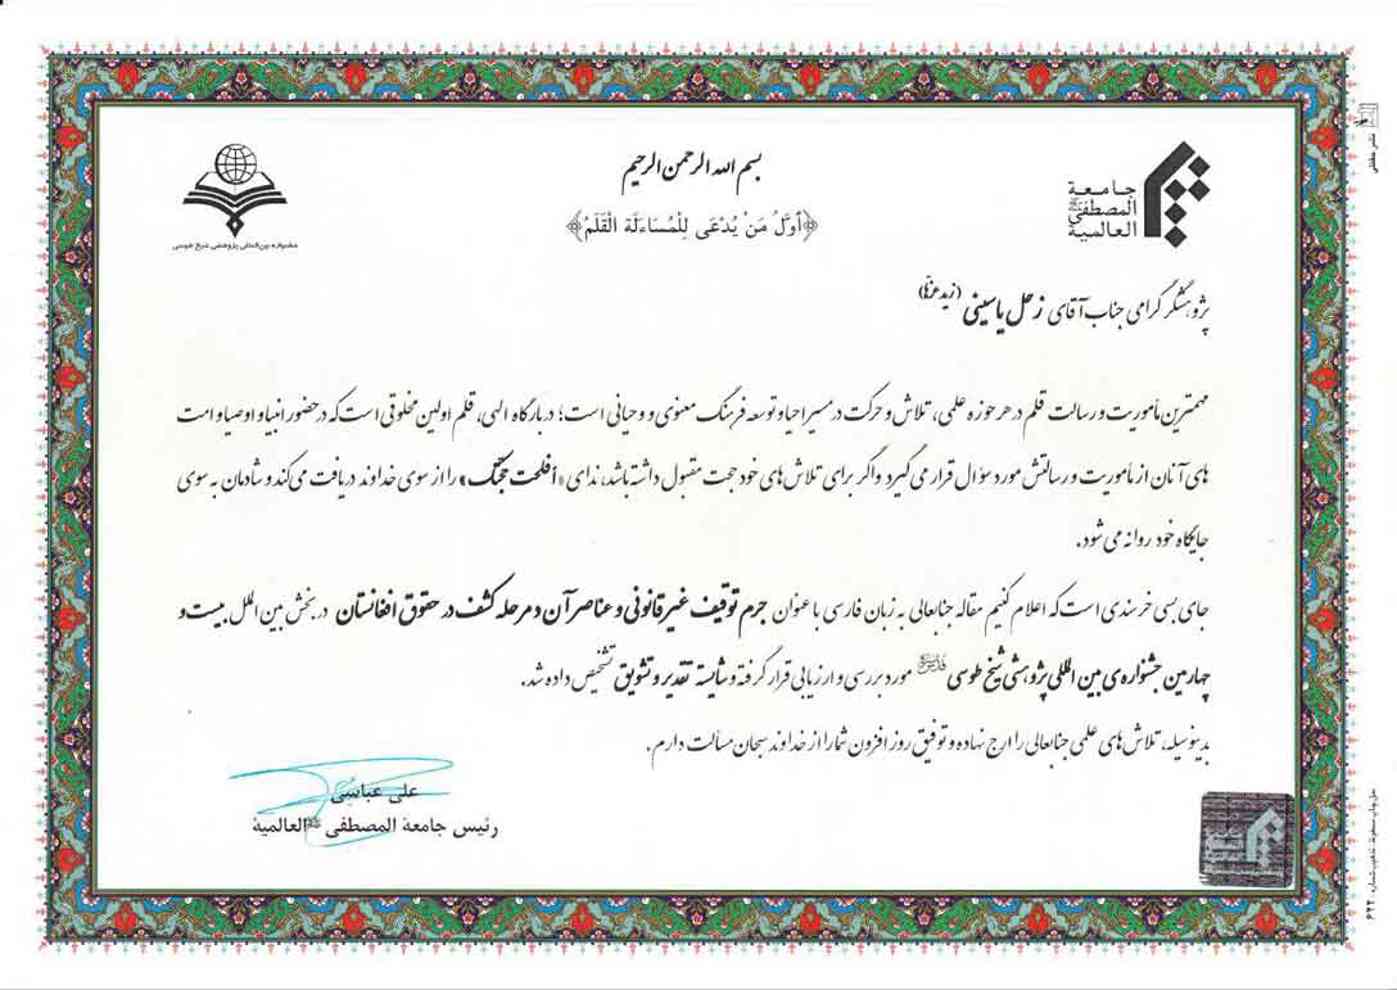 بسم الله الرحمن الرحیم
﴿أَوَّلُ مَنْ يُدْعَى لِلْمُسَاءَلَة الْقَلَمُ﴾
جامعة
المصطفی ﷺ
العالمیة
جشنواره بین‌المللی پژوهشی شیخ طوسی
پژوهشگر گرامی جناب آقای زحل یاسینی (زید عزّها)
مهمترین مأموریت و رسالت قلم در هر حوزه علمی، تلاش و حرکت در مسیر احیا و توسعه فرهنگ معنوی و وحیانی است؛ در بارگاه الهی، قلم اولین مخلوقی است که در حضور انبیا و اوصیا و امت
های آنان از مأموریت و رسالتش مورد سؤال قرار می گیرد و اگر برای تلاش های خود حجت مقبول داشته باشد، ندای «أفلحت حجتک» را از سوی خداوند دریافت می کند و شادمان به سوی
جایگاه خود روانه می شود.
جای بسی خرسندی است که اعلام کنیم مقاله جنابعالی به زبان فارسی با عنوان جرم توقیف غیر قانونی و عناصر آن در مرحله کشف در حقوق افغانستان در بخش بین الملل بیست و
چهارمین جشنواره‌ی بین المللی پژوهشی شیخ طوسی مورد بررسی و ارزیابی قرار گرفته و شایسته تقدیر و تشویق تشخیص داده شد.
بدینوسیله، تلاش های علمی جنابعالی را ارج نهاده و توفیق روز افزون شما را از خداوند سبحان مسألت دارم.
علی عباسی
رئیس جامعة المصطفی ﷺ العالمیة